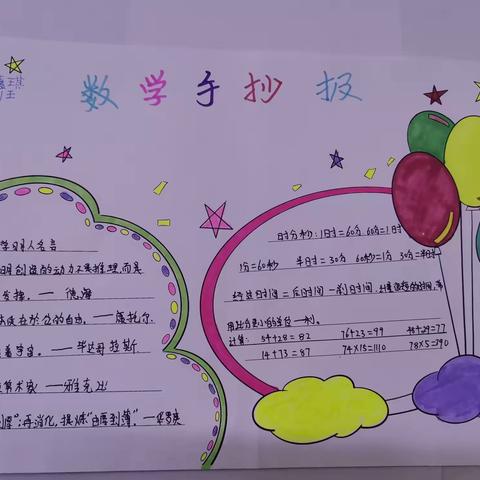 数学手抄报
琪
学习名人名言
明创造的动力不是推理,而是
发挥。—— 德·摩
本质在於它的自由。——康托尔
着宇宙。—— 毕达哥拉斯
算术家 ——雅克比
到厚";再消化,提炼"由厚到薄"。—华罗庚
时分秒:1时=60分 60分=1时
1分=60秒 半时=30分 60秒=1分 30分=半时
经过时间=后时间-前时间
计算:54+28=82 76+23=99 48+29=77
14+73=87 74×15=1110 78×5=390